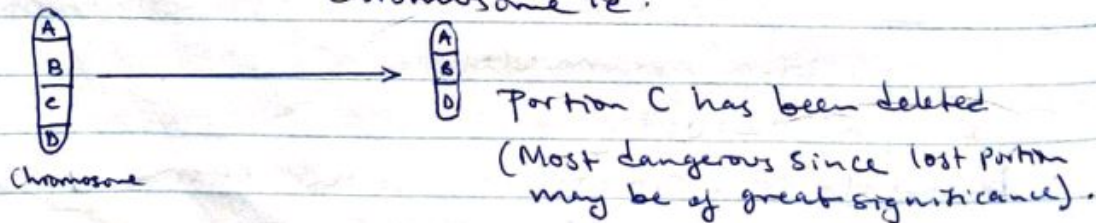 Chromosome ie.
A
B
C
D
Chromosome
A
B
D
Portion C has been deleted
(Most dangerous since lost portion
may be of great significance).